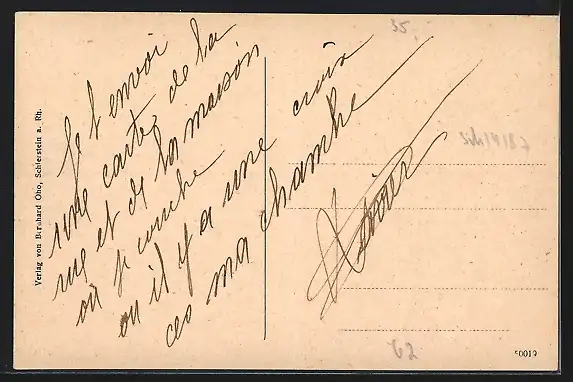 35
Je t'envoi
une carte de la
rue et de la maison
ou je couche
ou il y a une croix
ces ma chambre
Verlag von Bernhard Oho, Schierstein a. Rh.
62
50019